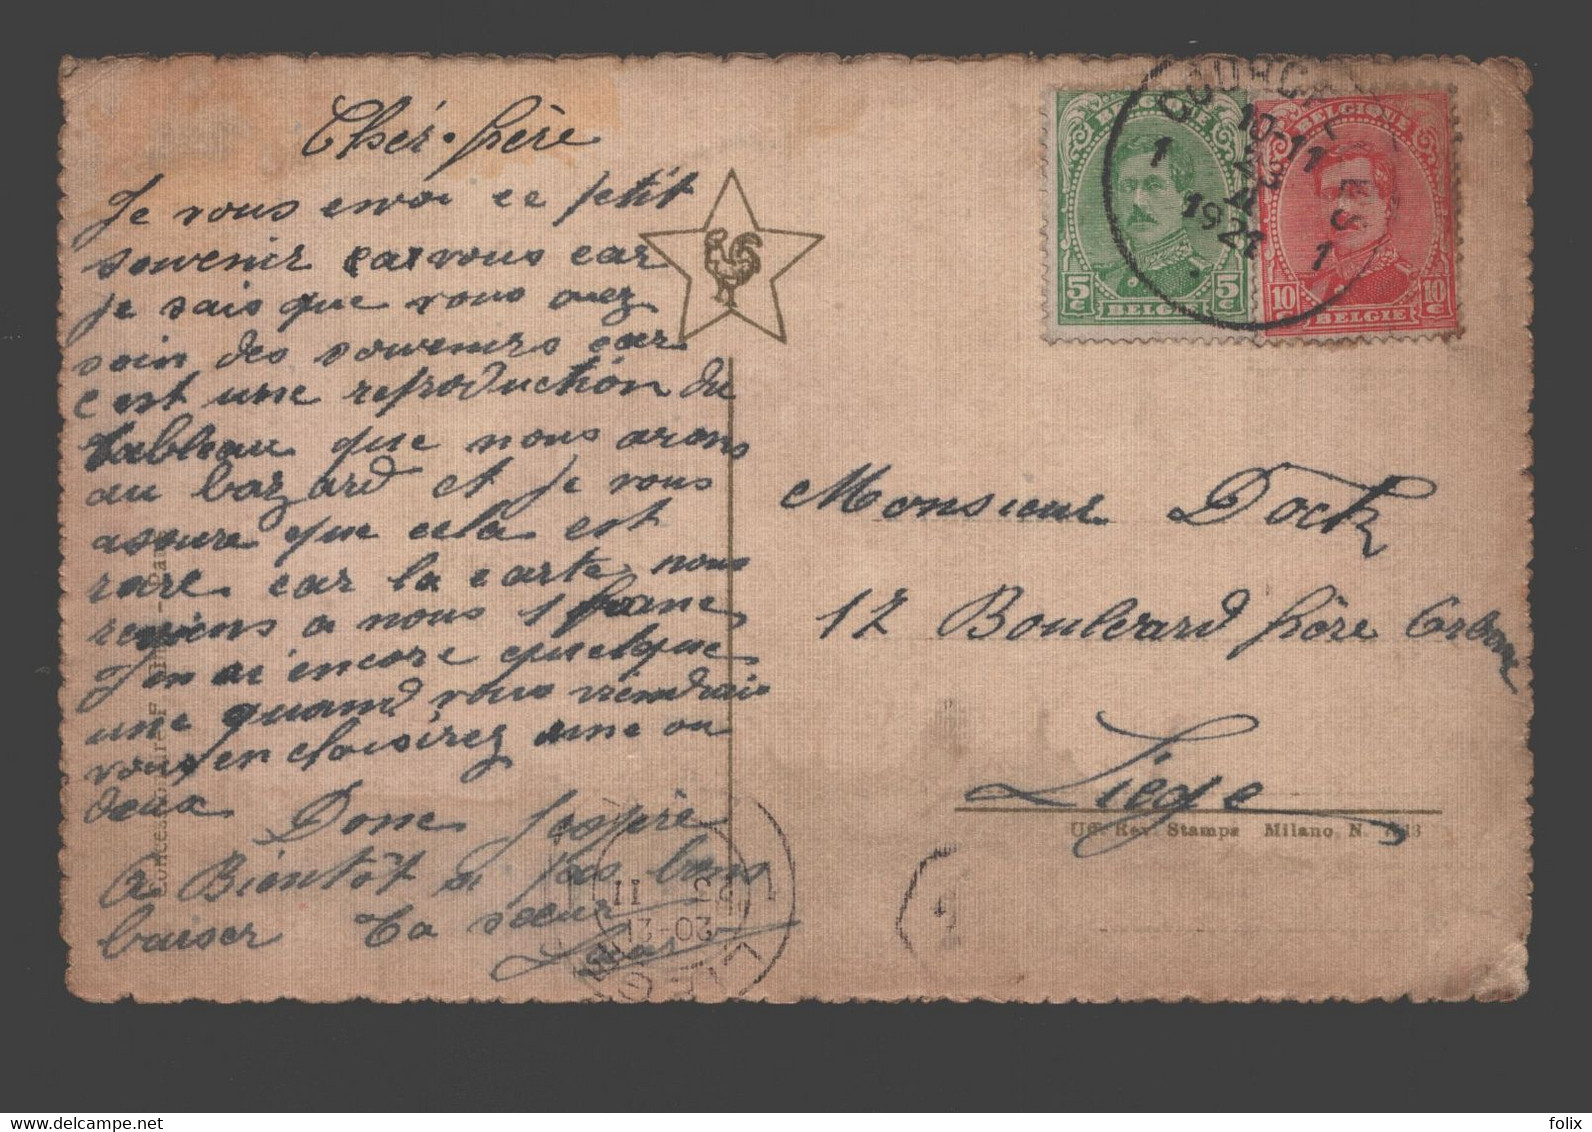 Cher frère
Je vous envoi ce petit
souvenir car vous car
je sais que vous avez
soin des souvenirs car
c est une reproduction du
tableau que nous avons
au bazard et je vous
assure que cela est
rare car la carte nous
reviens a nous 1 franc
J en ai encore quelque
une quand vous viendrais
vous en choisirez une ou
deux Donc J espère
A Bientôt a pas bons
baiser Ta sœur
BELGIQUE
5c 5c
BELGIË
BELGIQUE
10c 10c
BELGIË
COURCELLES
1 10-11 1
1921
Monsieur Dock
12 Boulevard frère Orban
Liège
Uff. Rev. Stampa Milano N.
LIEGE
20-21
II
folix